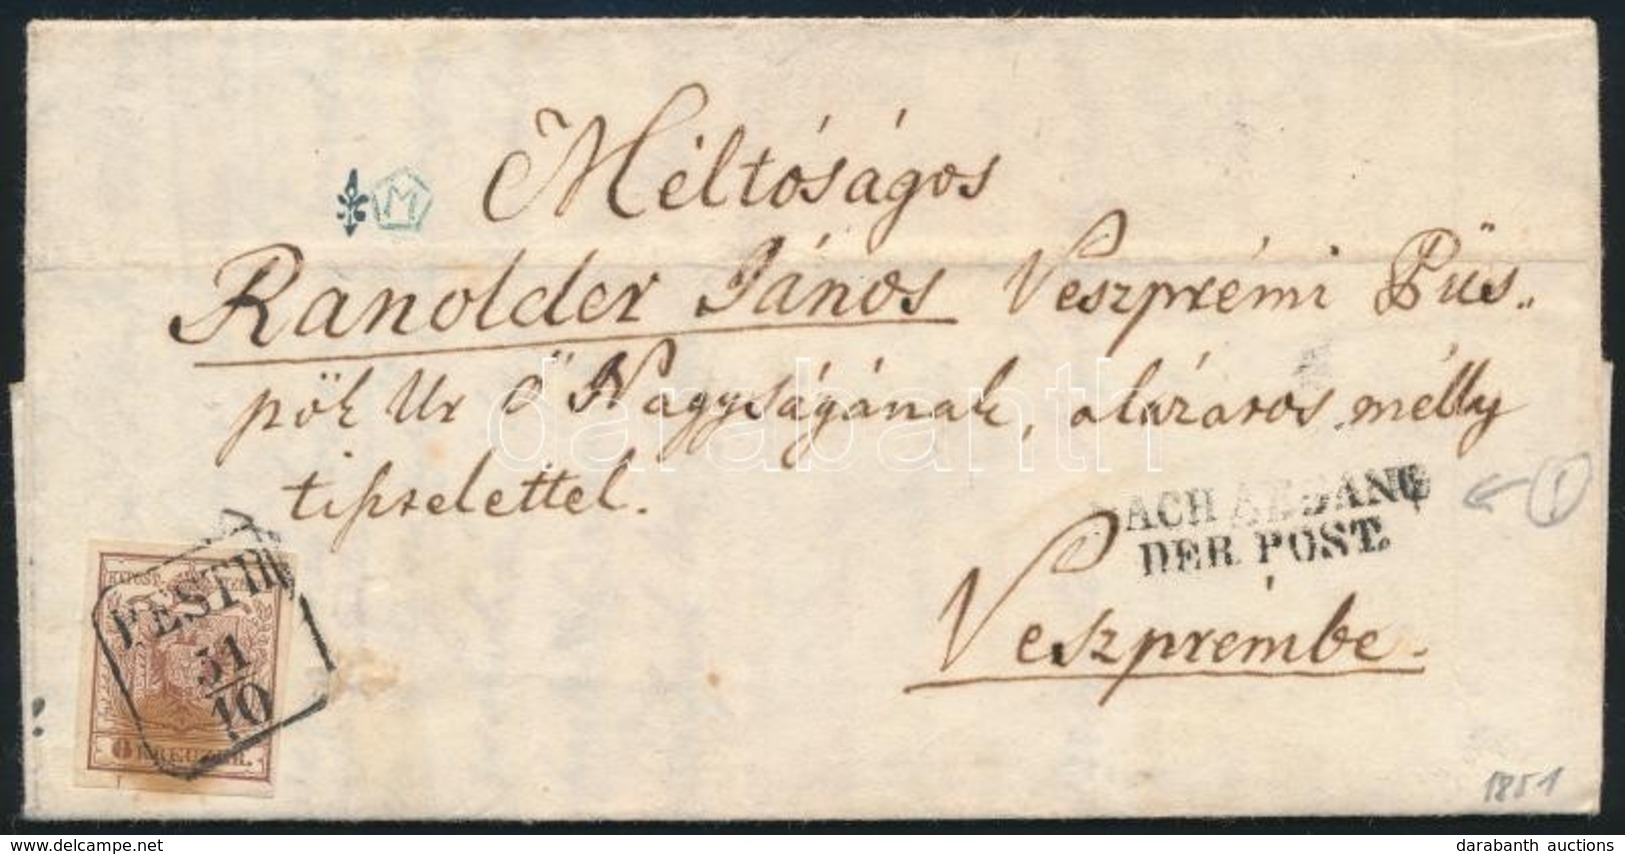 M
Méltóságos
Ranolder János Veszprémi Püs„
pök Ur Ő Nagyságának, alázatos mélly
tisztelettel.
NACH ABGANG
DER POST.
Veszprémbe.
PESTH
31
10
KK POST-STEMPEL
6 KREUZER.
1
1851
darabanth
darabanth auctions
delcampe.net